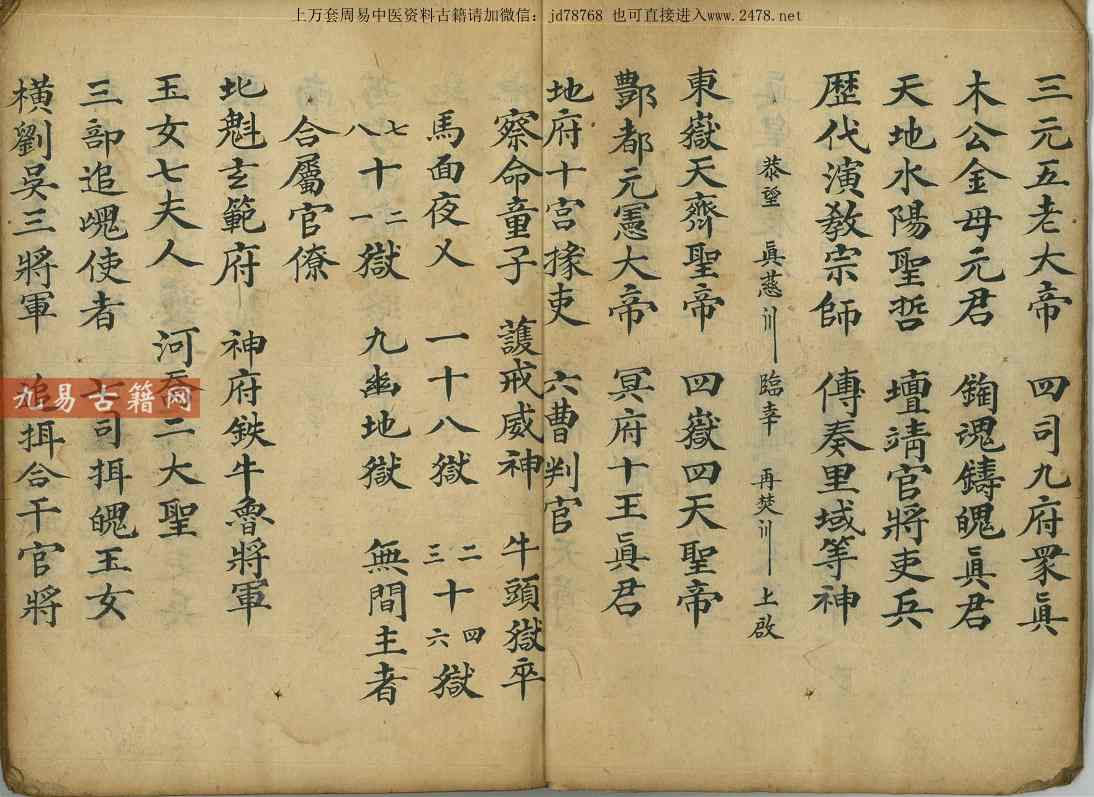 上万套周易中医资料古籍请加微信：jd78768 也可直接进入www.2478.net
三元五老大帝 四司九府眾眞
木公金母元君 魂鑄魄眞君
天地水陽聖哲 壇靖官將吏兵
歷代演教宗師 傳奏里域等神
恭望 眞慈 臨幸 再焚 上啟
東嶽天齊聖帝 四嶽四天聖帝
酆都元憲大帝 冥府十王眞君
地府十宮掾吏 六曹判官
察命童子 護戒威神 牛頭獄卒
馬面夜叉 一十八獄 二三十四六獄
七八十二一獄 九幽地獄 無間主者
合屬官僚
北魁玄範府 神府鉄牛魯將軍
玉女七夫人 河喬二大聖
三部追魂使者 七司拘魄玉女
橫劉吳三將軍 追拘合干官將
九易古籍网